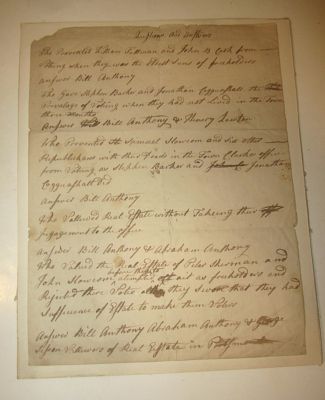 Questions and Answers
Who Prevented William Tillman and John B Cook from
Voting when they was the Eldest Sons of freeholders
answer Bill Anthony
Who Gave Stephen Barker and Jonathan Coggeshall the
Priveledge of Voting when they had not lived in the town
three Months
Answer Bill Anthony &
Who Prevented Samuel Howison and Six other
Republickans with their Deeds in the Town Clerks office
from Voting as Stephen Barker and Jonathan
Coggeshall Did
answer Bill Anthony
Who Vallewed Real Estate without Takeing their
engagement to the office
answer Bill Anthony & Abraham Anthony
Who Valued the Real Estate of Peleg Sherman and
John Howison attempted to act as freeholders and
Rejected their Votes they Swore that they had
Sufficience of Estate to make them Voters
Answer Bill Anthony Abraham Anthony & George
Sisson Vallewers of Real Estate in Portsmouth